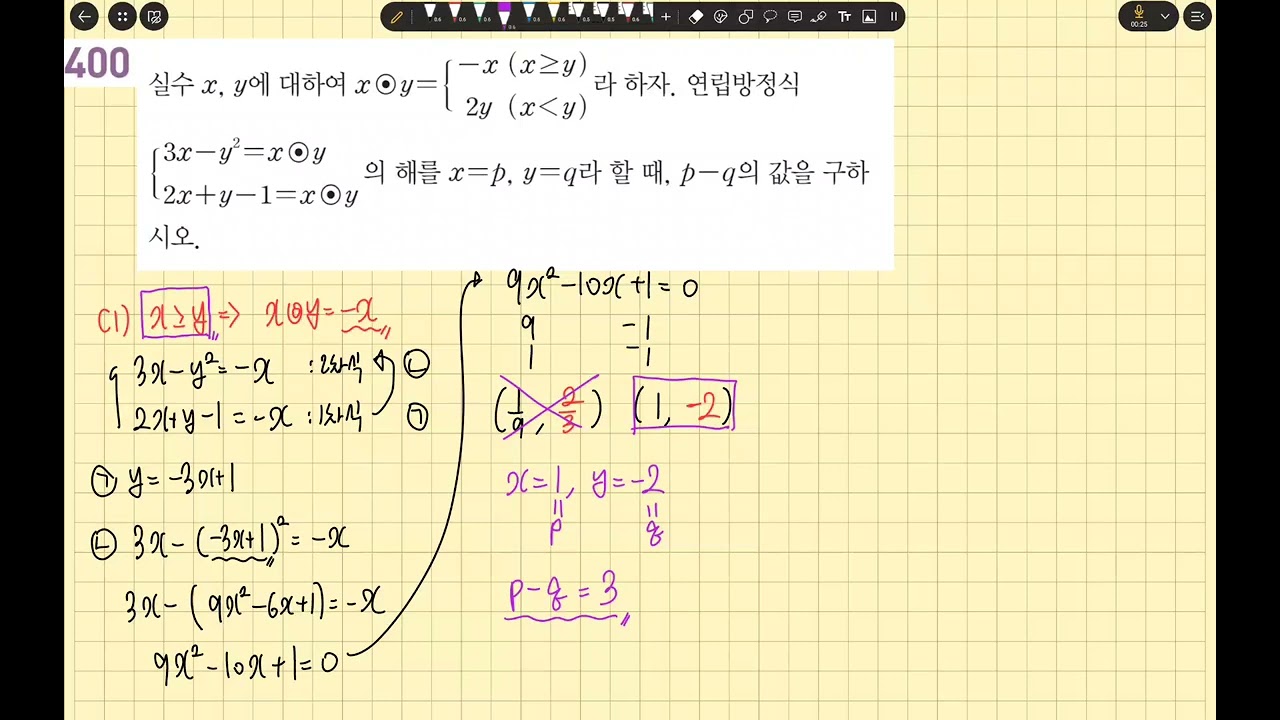 400
실수 x, y에 대하여 x⊙y={ -x (x≥y)
2y (x<y) 라 하자. 연립방정식
{ 3x-y²=x⊙y
2x+y-1=x⊙y 의 해를 x=p, y=q라 할 때, p-q의 값을 구하
시오.
(1) x≥y => x⊙y=-x
3x-y²=-x :2차식 ㉡
2x+y-1=-x :1차식 ㉠
㉠ y=-3x+1
㉡ 3x-(-3x+1)²=-x
3x-(9x²-6x+1)=-x
9x²-10x+1=0
9x²-10x+1=0
9 -1
1 -1
(1/9, 2/3) (1, -2)
x=1, y=-2
p q
p-q=3
00:25
0.6 0.6 0.6 0.6 0.6 0.6 0.5 0.5 0.6
Tт